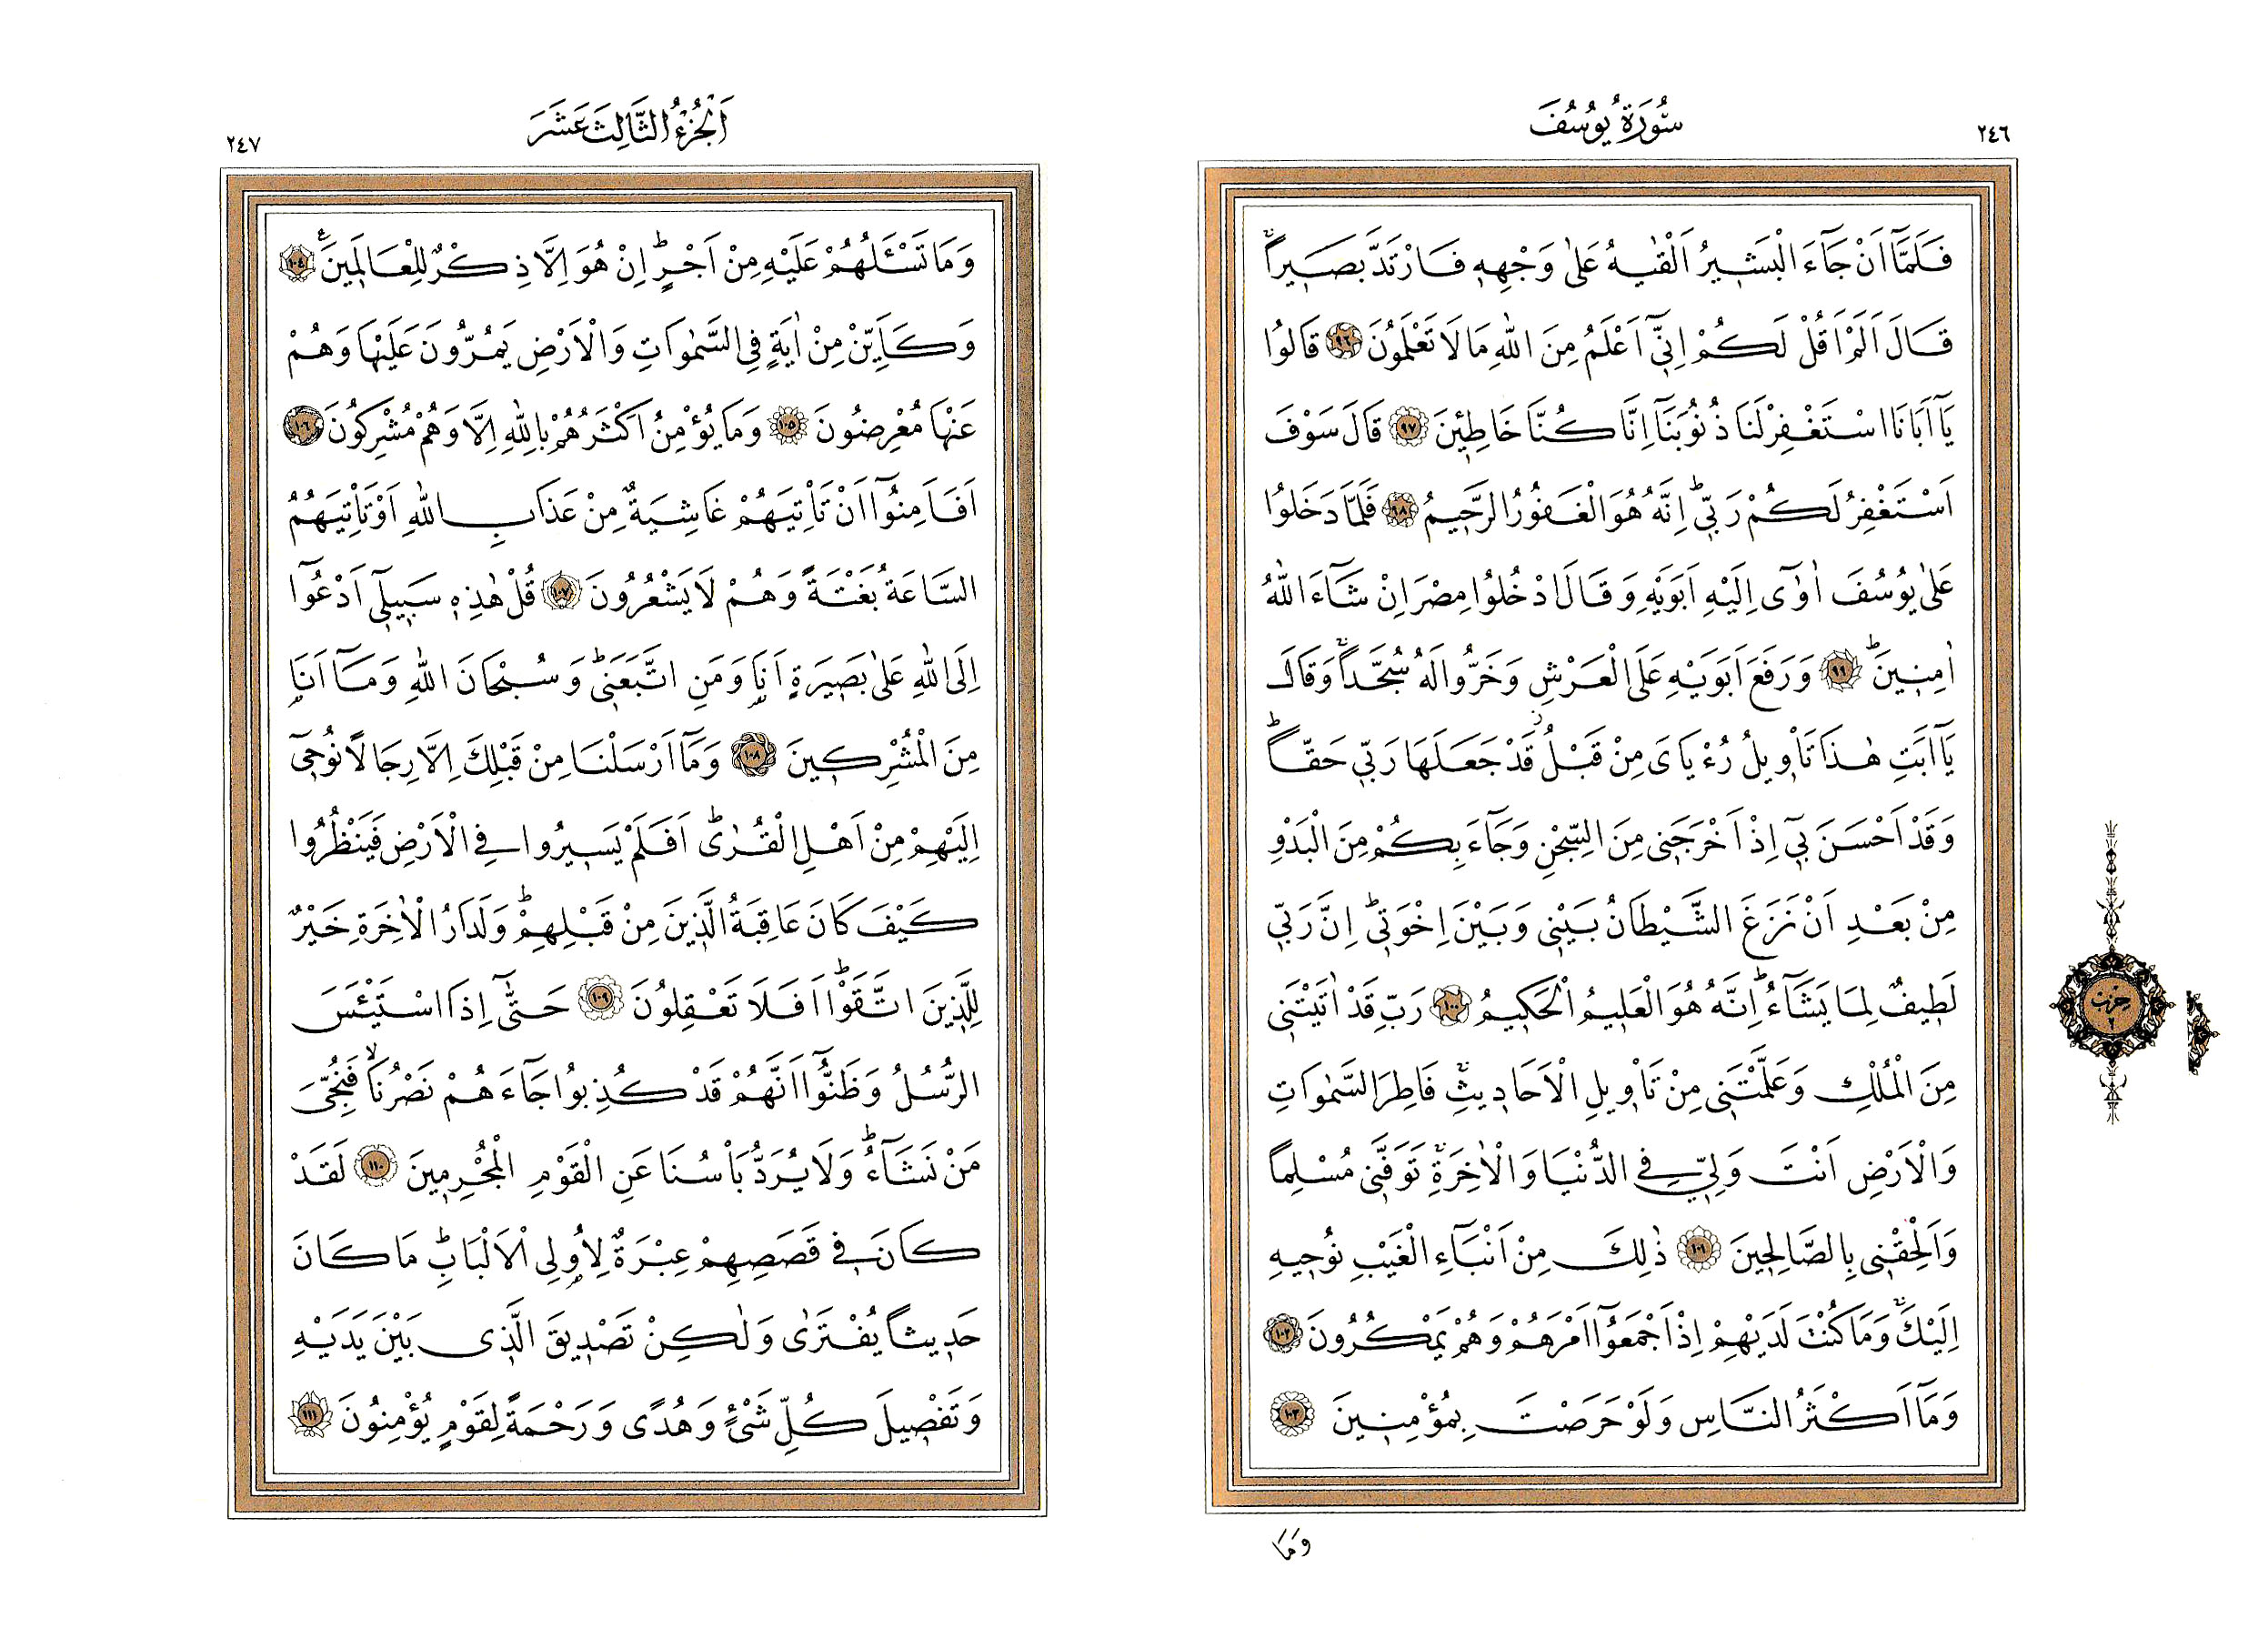 ٢٤٦
سُورَةُ يُوسُفَ
فَلَمَّٓا اَنْ جَٓاءَ الْبَشٖيرُ اَلْقٰيهُ عَلٰى وَجْهِهٖ فَارْتَدَّ بَصٖيراًۚ
قَالَ اَلَمْ اَقُلْ لَكُمْ اِنّٖٓي اَعْلَمُ مِنَ اللّٰهِ مَا لَا تَعْلَمُونَ ٩٦ قَالُوا
يَٓا اَبَانَا اسْتَغْفِرْ لَنَا ذُنُوبَنَٓا اِنَّا كُنَّا خَاطِـٖٔينَ ٩٧ قَالَ سَوْفَ
اَسْتَغْفِرُ لَكُمْ رَبّٖيؕ اِنَّهُ هُوَ الْغَفُورُ الرَّحٖيمُ ٩٨ فَلَمَّا دَخَلُوا
عَلٰى يُوسُفَ اٰوٰٓى اِلَيْهِ اَبَوَيْهِ وَقَالَ ادْخُلُوا مِصْرَ اِنْ شَٓاءَ اللّٰهُ
اٰمِنٖينَؕ ٩٩ وَرَفَعَ اَبَوَيْهِ عَلَى الْعَرْشِ وَخَرُّوا لَهُ سُجَّداًۚ وَقَالَ
يَٓا اَبَتِ هٰذَا تَأْوٖيلُ رُءْيَايَ مِنْ قَبْلُؗ قَدْ جَعَلَهَا رَبّٖي حَقّاًؕ
وَقَدْ اَحْسَنَ بٖٓي اِذْ اَخْرَجَنٖي مِنَ السِّجْنِ وَجَٓاءَ بِكُمْ مِنَ الْبَدْوِ
مِنْ بَعْدِ اَنْ نَزَغَ الشَّيْطَانُ بَيْنٖي وَبَيْنَ اِخْوَتٖيؕ اِنَّ رَبّٖي
لَطٖيفٌ لِمَا يَشَٓاءُؕ اِنَّهُ هُوَ الْعَلٖيمُ الْحَكٖيمُ ١٠٠ رَبِّ قَدْ اٰتَيْتَنٖي
مِنَ الْمُلْكِ وَعَلَّمْتَنٖي مِنْ تَأْوٖيلِ الْاَحَادٖيثِۚ فَاطِرَ السَّمٰوَاتِ
وَالْاَرْضِ اَنْتَ وَلِيّٖ فِي الدُّنْيَا وَالْاٰخِرَةِۚ تَوَفَّنٖي مُسْلِماً
وَاَلْحِقْنٖي بِالصَّالِحٖينَ ١٠١ ذٰلِكَ مِنْ اَنْبَٓاءِ الْغَيْبِ نُوحٖيهِ
اِلَيْكَۚ وَمَا كُنْتَ لَدَيْهِمْ اِذْ اَجْمَعُٓوا اَمْرَهُمْ وَهُمْ يَمْكُرُونَ ١٠٢
وَمَٓا اَكْثَرُ النَّاسِ وَلَوْ حَرَصْتَ بِمُؤْمِنٖينَ ١٠٣
وَمَا
حزب ٢
اَلْجُزْءُ الثَّالِثَ عَشَرَ
٢٤٧
وَمَا تَسْـَٔلُهُمْ عَلَيْهِ مِنْ اَجْرٍؕ اِنْ هُوَ اِلَّا ذِكْرٌ لِلْعَالَمٖينَࣖ ١٠٤
وَكَاَيِّنْ مِنْ اٰيَةٍ فِي السَّمٰوَاتِ وَالْاَرْضِ يَمُرُّونَ عَلَيْهَا وَهُمْ
عَنْهَا مُعْرِضُونَ ١٠٥ وَمَا يُؤْمِنُ اَكْثَرُهُمْ بِاللّٰهِ اِلَّا وَهُمْ مُشْرِكُونَ ١٠٦
اَفَاَمِنُٓوا اَنْ تَأْتِيَهُمْ غَاشِيَةٌ مِنْ عَذَابِ اللّٰهِ اَوْ تَأْتِيَهُمُ
السَّاعَةُ بَغْتَةً وَهُمْ لَا يَشْعُرُونَ ١٠٧ قُلْ هٰذِهٖ سَبٖيلٖٓي اَدْعُٓوا
اِلَى اللّٰهِ عَلٰى بَصٖيرَةٍ اَنَا۬ وَمَنِ اتَّبَعَنٖيؕ وَسُبْحَانَ اللّٰهِ وَمَٓا اَنَا۬
مِنَ الْمُشْرِكٖينَ ١٠٨ وَمَٓا اَرْسَلْنَا مِنْ قَبْلِكَ اِلَّا رِجَالاً نُوحٖٓي
اِلَيْهِمْ مِنْ اَهْلِ الْقُرٰىؕ اَفَلَمْ يَسٖيرُوا فِي الْاَرْضِ فَيَنْظُرُوا
كَيْفَ كَانَ عَاقِبَةُ الَّذٖينَ مِنْ قَبْلِهِمْؕ وَلَدَارُ الْاٰخِرَةِ خَيْرٌ
لِلَّذٖينَ اتَّقَوْاؕ اَفَلَا تَعْقِلُونَ ١٠٩ حَتّٰٓى اِذَا اسْتَيْـَٔسَ
الرُّسُلُ وَظَنُّٓوا اَنَّهُمْ قَدْ كُذِبُوا جَٓاءَهُمْ نَصْرُنَاۙ فَنُجِّيَ
مَنْ نَشَٓاءُؕ وَلَا يُرَدُّ بَأْسُنَا عَنِ الْقَوْمِ الْمُجْرِمٖينَ ١١٠ لَقَدْ
كَانَ فٖي قَصَصِهِمْ عِبْرَةٌ لِاُو۬لِي الْاَلْبَابِؕ مَا كَانَ
حَدٖيثاً يُفْتَرٰى وَلٰكِنْ تَصْدٖيقَ الَّذٖي بَيْنَ يَدَيْهِ
وَتَفْصٖيلَ كُلِّ شَيْءٍ وَهُدًى وَرَحْمَةً لِقَوْمٍ يُؤْمِنُونَ ١١١